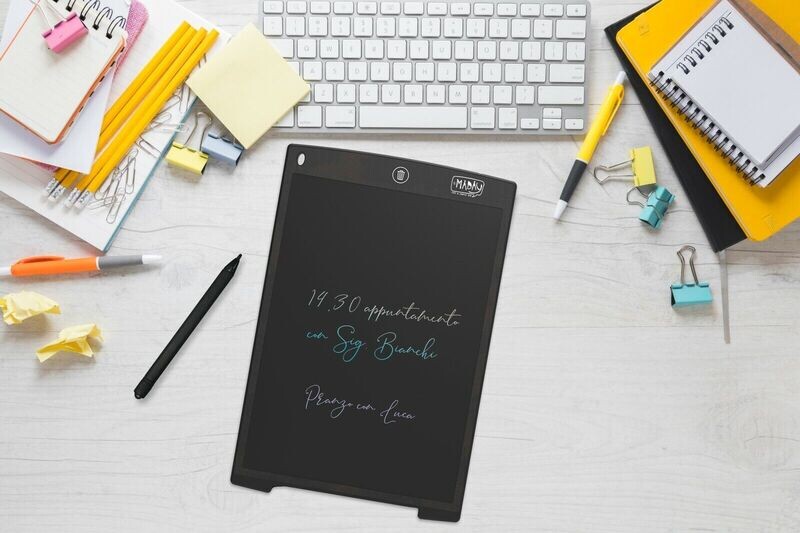 MADAY
14.30 appuntamento
con Sig. Bianchi
Pranzo con Luca